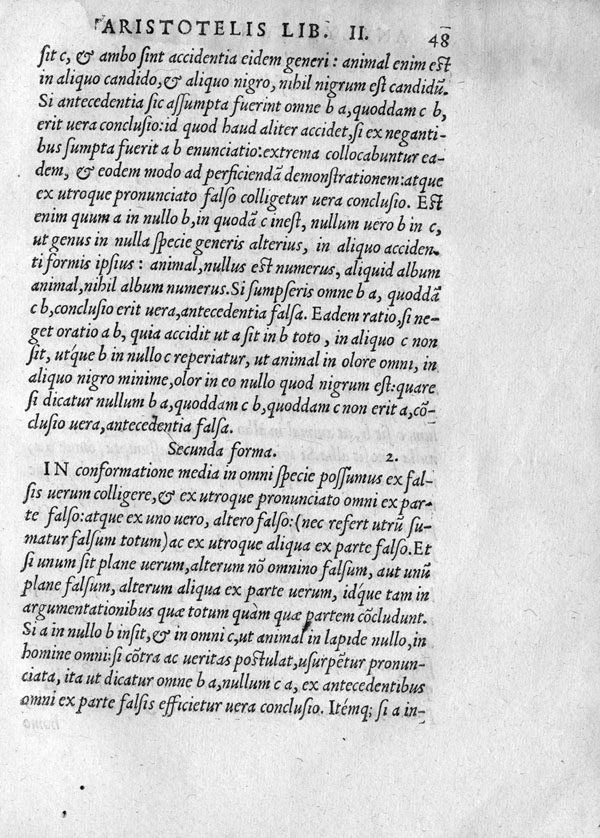 ARISTOTELIS LIB. II.
48
sit c, & ambo sint accidentia eidem generi: animal enim est
in aliquo candido, & aliquo nigro, nihil nigrum est candidũ.
Si antecedentia sic assumpta fuerint omne b a, quoddam c b,
erit uera conclusio: id quod haud aliter accidet, si ex neganti-
bus sumpta fuerit a b enunciatio: extrema collocabuntur ea-
dem, & eodem modo ad perficiendã demonstrationem: atque
ex utroque pronunciato falso colligetur uera conclusio. Est
enim quum a in nullo b, in quodã c inest, nullum uero b in c,
ut genus in nulla specie generis alterius, in aliquo acciden-
ti formis ipsius: animal, nullus est numerus, aliquid album
animal, nihil album numerus. Si sumpseris omne b a, quoddã
c b, conclusio erit uera, antecedentia falsa. Eadem ratio, si ne-
get oratio a b, quia accidit ut a sit in b toto, in aliquo c non
sit, utq́ue b in nullo c reperiatur, ut animal in olore omni, in
aliquo nigro minime, olor in eo nullo quod nigrum est: quare
si dicatur nullum b a, quoddam c b, quoddam c non erit a, cõ-
clusio uera, antecedentia falsa.
Secunda forma. 2.
IN conformatione media in omni specie possumus ex fal-
sis uerum colligere, & ex utroque pronunciato omni ex par-
te falso: atque ex uno uero, altero falso: (nec refert utrũ su-
matur falsum totum) ac ex utroque aliqua ex parte falso. Et
si unum sit plane uerum, alterum nõ omnino falsum, aut unũ
plane falsum, alterum aliqua ex parte uerum, idque tam in
argumentationibus quæ totum quàm quæ partem cõcludunt.
Si a in nullo b insit, & in omni c, ut animal in lapide nullo, in
homine omni: si cõtra ac ueritas postulat, usurpẽtur pronun-
ciata, ita ut dicatur omne b a, nullum c a, ex antecedentibus
omni ex parte falsis efficietur uera conclusio. Itémq; si a in-